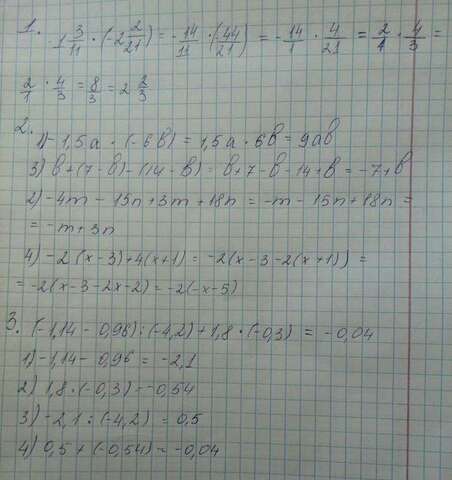 1. 1 3/11 · (-2 2/21) = -14/11 · (-44/21) = -14/1 · 4/21 = 2/1 · 4/3 =
2/1 · 4/3 = 8/3 = 2 2/3
2.
1) -1,5a · (-6b) = 1,5a · 6b = 9ab
3) b+(7-b)-(14-b) = b+7-b-14+b = -7+b
2) -4m - 15n + 3m + 18n = -m - 15n + 18n =
= -m + 3n
4) -2(x-3)+4(x+1) = -2(x-3-2(x+1)) =
= -2(x-3-2x-2) = -2(-x-5)
3. (-1,14 - 0,96) : (-4,2) + 1,8 · (-0,3) = -0,04
1) -1,14 - 0,96 = -2,1
2) 1,8 · (-0,3) = -0,54
3) -2,1 : (-4,2) = 0,5
4) 0,5 + (-0,54) = -0,04